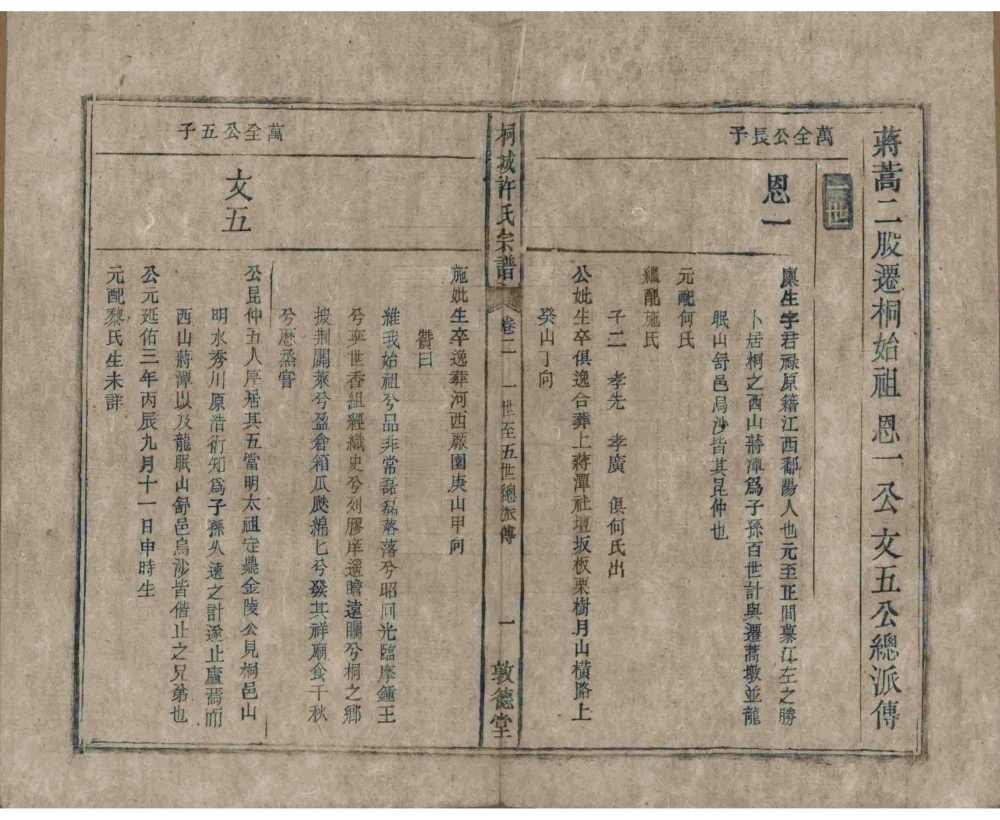 蔣蒿二股遷桐始祖恩一公文五公總派傳
一世
萬全公長子
恩一
廩生字君祿原籍江西鄱陽人也元至正間慕江左之勝
卜居桐之西山蔣潭爲子孫百世計與遷蒿墩並龍
眠山舒邑烏沙皆其昆仲也
元配何氏
繼配施氏
子二 孝先 孝廣 俱何氏出
公妣生卒俱逸合葬上蔣潭社壇坂板栗樹月山橫路上
癸山丁向
桐城許氏宗譜
卷二 一世至五世總派傳
一
敦德堂
施妣生卒逸葬河西厰園庚山甲向
贊曰
維我始祖兮品非常磊磊落落兮昭回光臨摩鍾王
兮奕世香組經織史兮列膠庠遥瞻遠矚兮桐之鄉
披荆闢萊兮盈倉箱瓜瓞綿匕兮發其祥廟食千秋
兮歷烝嘗
萬全公五子
文五
公昆仲五人序居其五當明太祖定鼎金陵公見桐邑山
明水秀川原浩衍知爲子孫久遠之計遂止廬焉而
西山蔣潭以及龍眠山舒邑烏沙皆偕止之兄弟也
公元延佑三年丙辰九月十一日申時生
元配黎氏生未詳